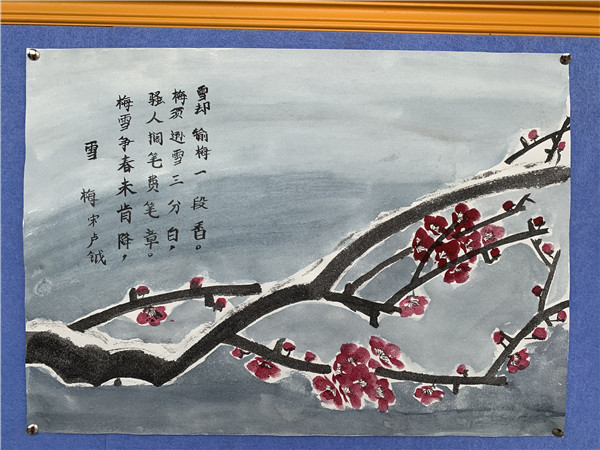 雪 梅 宋卢钺
梅雪争春未肯降，
骚人搁笔费笔章。
梅须逊雪三分白，
雪却输梅一段香。